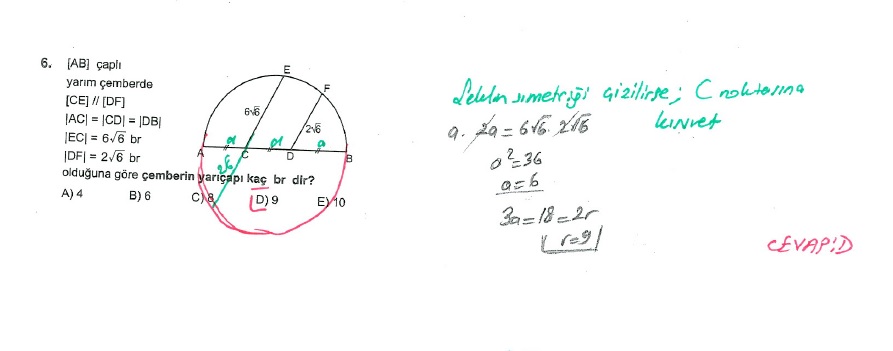 6. [AB] çaplı
yarım çemberde
[CE] // [DF]
|AC| = |CD| = |DB|
|EC| = 6√6 br
|DF| = 2√6 br
olduğuna göre çemberin yarıçapı kaç br dir?
A) 4 B) 6 C) 8 D) 9 E) 10
E
F
6√6
2√6
a a a
A C D B
2√6
Şeklin simetriği çizilirse; C noktasına
kuvvet
a. 2a = 6√6. 2√6
a²=36
a=6
3a=18=2r
r=9
CEVAP:D